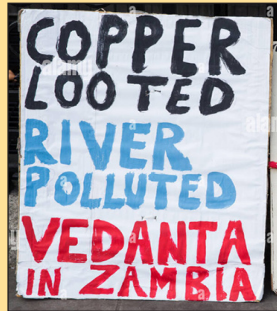 COPPER
LOOTED
RIVER
POLLUTED
VEDANTA
IN ZAMBIA
alamy
alamy